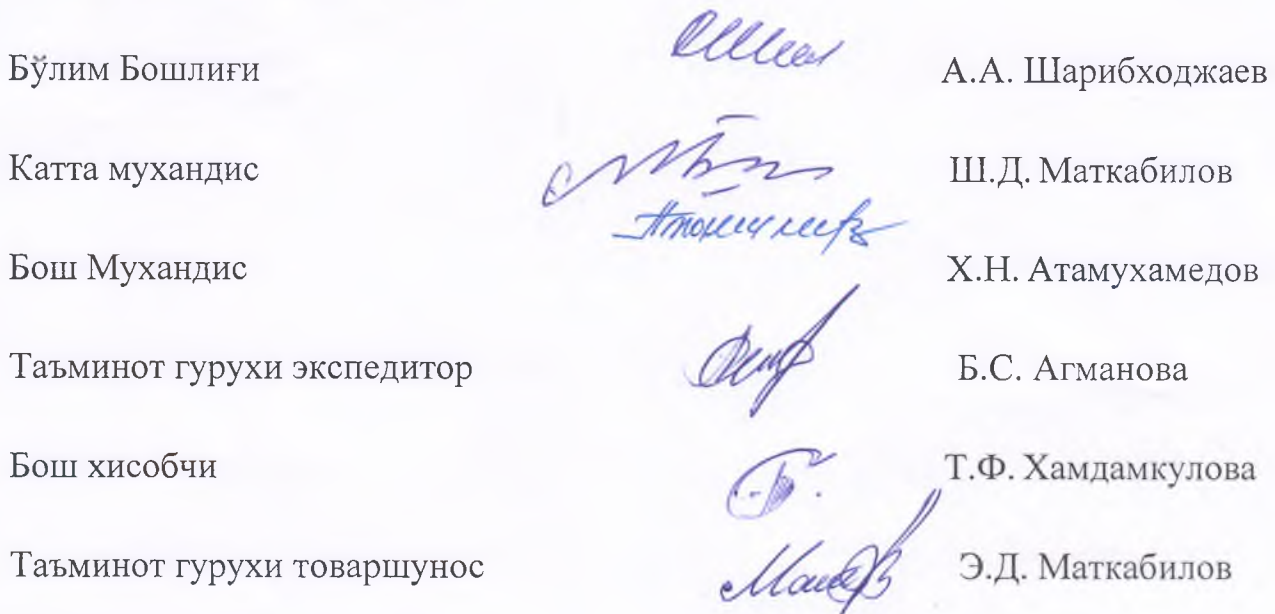 Бўлим Бошлиғи А.А. Шарибходжаев
Катта мухандис Ш.Д. Маткабилов
Бош Мухандис Х.Н. Атамухамедов
Таъминот гурухи экспедитор Б.С. Агманова
Бош хисобчи Т.Ф. Хамдамкулова
Таъминот гурухи товаршунос Э.Д. Маткабилов